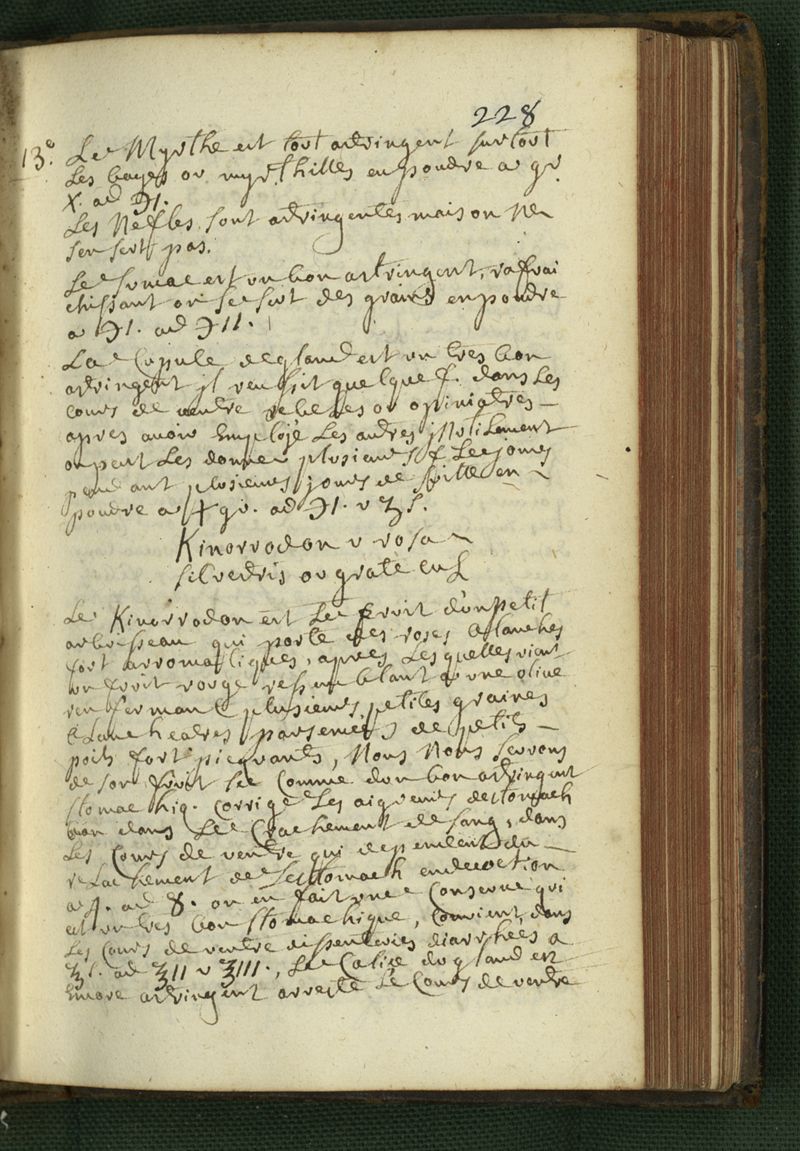 228
13.° Le Myrthe est fort astringent surtout
Les bayes ou myrthilles en poudre a gr.
X. ad ℈1.
Les Nefles sont astringentes mais on ne
sen sert pas.
Le sumac est un bon astringent, rafrai
chissant on se sert des grains en poudre
a ℈1. ad ℈11.
La Cupule de gland est un tres bon
astringent il reussit quelque f. dans Les
cours de ventre rebelles ou opiniatres
apres avoir Emplojé Les autres jnutilement
on peut Les donner plusieurs f. Les jours
pendant plusieurs jours de suitte en
poudre a 4 gr. ad ℈1. v ʒs.
Kinorrodon v rosa
silvestris ou grate cul
Le Kinorrodon est Le fruit dun petit
arbrisseau qui porte des roses blanches
fort arromatiques, apres Les quelles vient
un fruit rouge ressemblant a une olive
renfermant plusieurs petites graines
blancheatres parsemées de petits
poils fort picquants, Nous Nous servons
de son fruit sec Comme dun bon astringent
stomachiq. corrige Les aigreurs destomach
bon dans Le Crachement de sang, dans
Les Cours de ventre qui dependent du
relachement de Lestomach en decoction
a 4. ad 8. on en fait une Conserve qui
est un tres bon stomachique, convient dans
Les Cours de ventre dissenteries diarrhées a
ʒ1. ad ʒ11 v ʒ111., Le Calice du gland est
Encore astringent arreste Le Cours de ventre